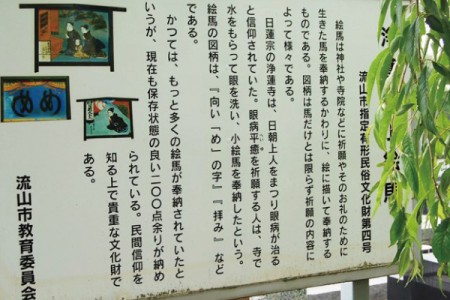 流山市指定有形民俗文化財第四号
絵馬は神社や寺院などに祈願やそのお礼のために
生きた馬を奉納するかわりに、絵に描いて奉納する
ものである。図柄は馬だけとは限らず祈願の内容に
よって様々である。
日蓮宗の浄蓮寺は、日朝上人をまつり眼病が治る
と信仰されていた。眼病平癒を祈願する人は、寺で
水をもらって眼を洗い、小絵馬を奉納したという。
絵馬の図柄は、『向い「め」の字』『拝み』など
である。
かつては、もっと多くの絵馬が奉納されていたと
いうが、現在も保存状態の良い二〇〇点余りが納め
られている。民間信仰を
知る上で貴重な文化財で
ある。
流山市教育委員会
め